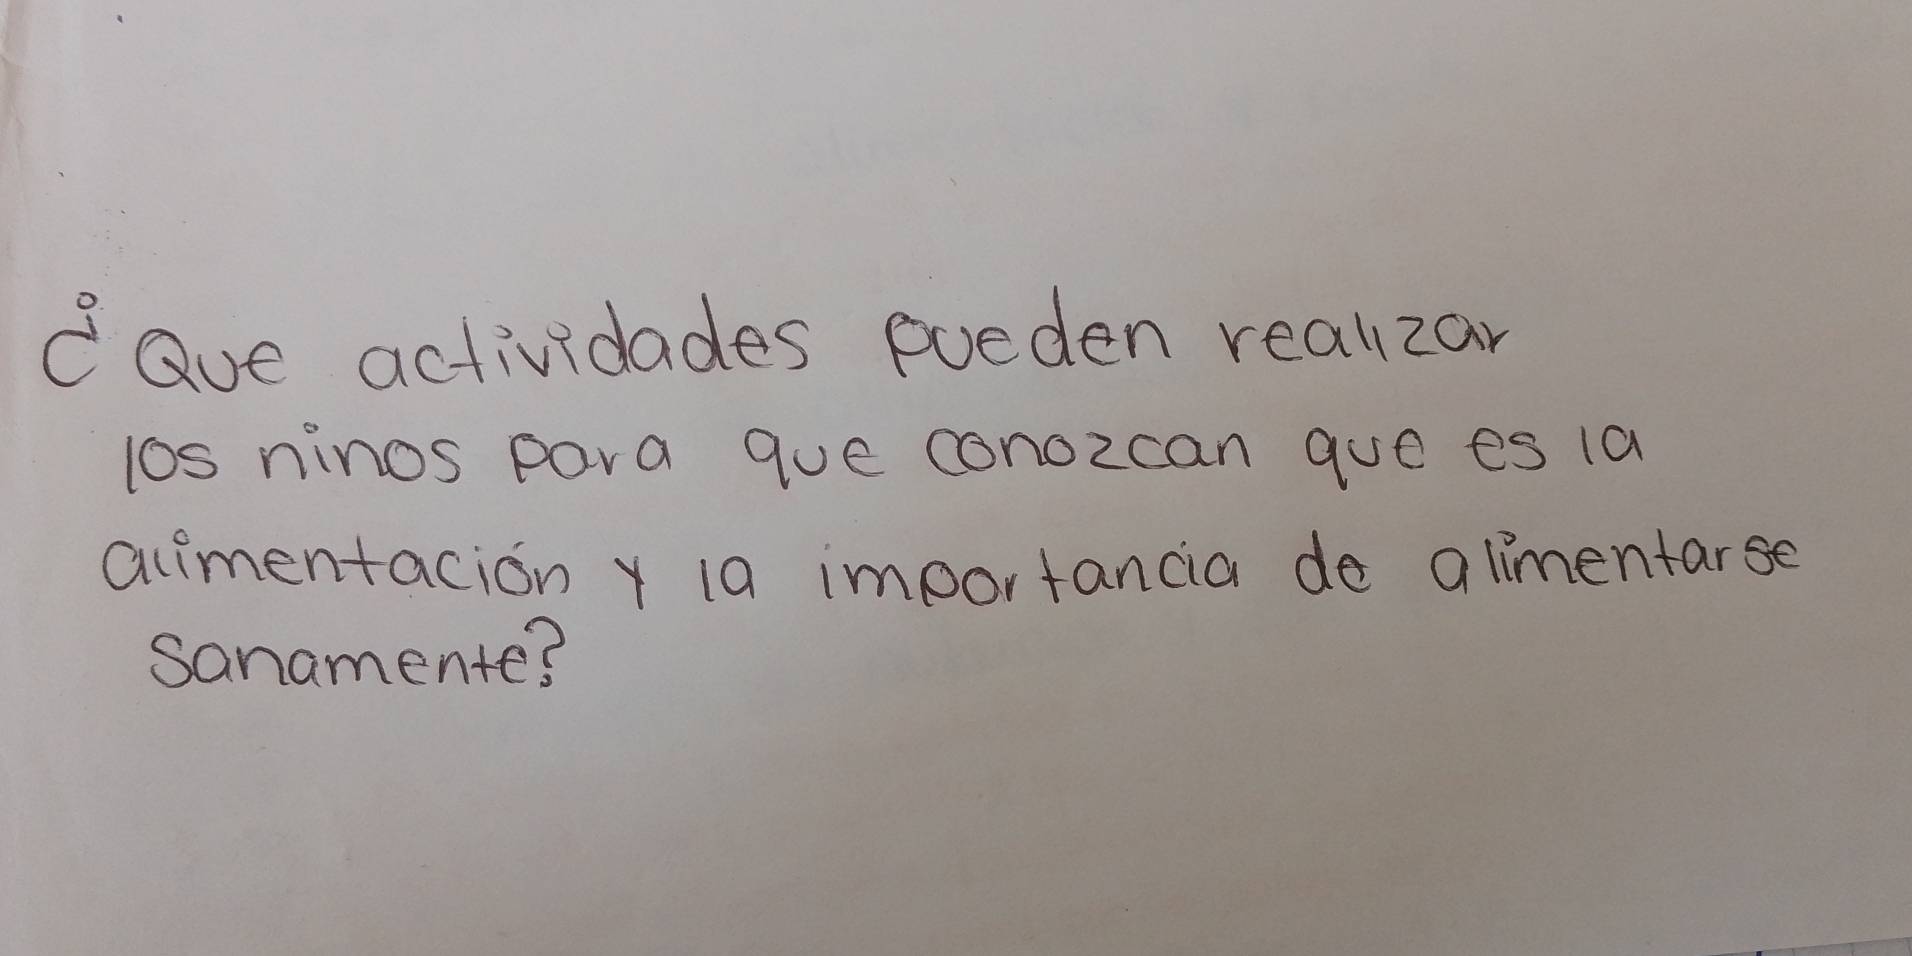 ¿Que actividades pueden realizar
los ninos para que conozcan que es la
alimentación y la importancia de alimentarse
sanamente?